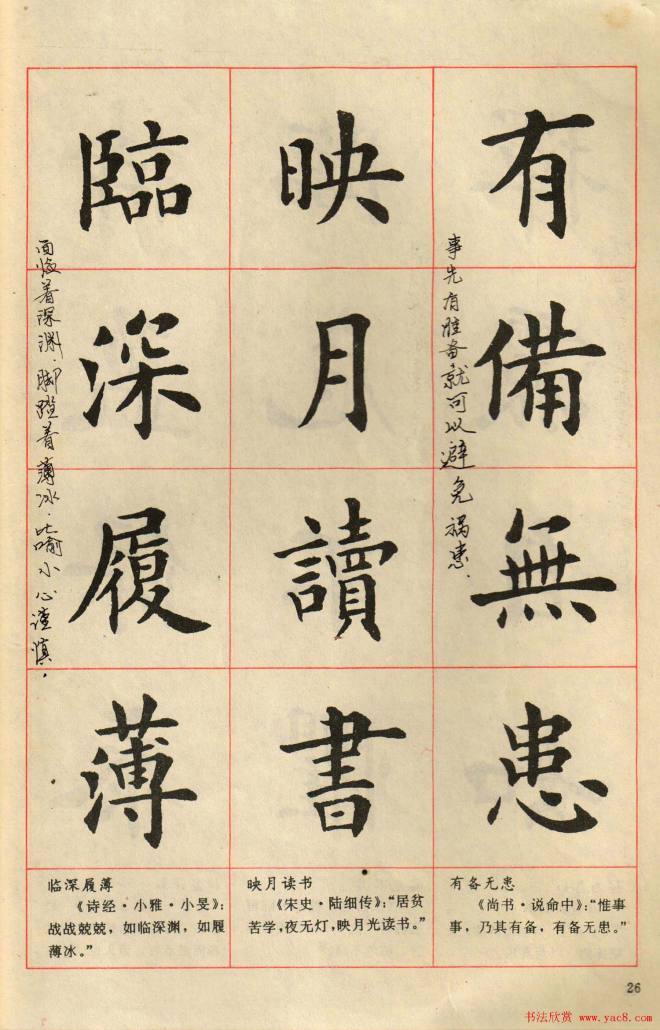 有備無患
事先有准备就可以避免祸患.
映月讀書
臨深履薄
面临着深渊.脚踏着薄冰.比喻小心谨慎.
有备无患
《尚书·说命中》:“惟事
事，乃其有备，有备无患。”
映月读书
《宋史·陆细传》:“居贫
苦学，夜无灯，映月光读书。”
临深履薄
《诗经·小雅·小旻》:
战战兢兢，如临深渊，如履
薄冰。”
26
书法欣赏 www.yac8.com